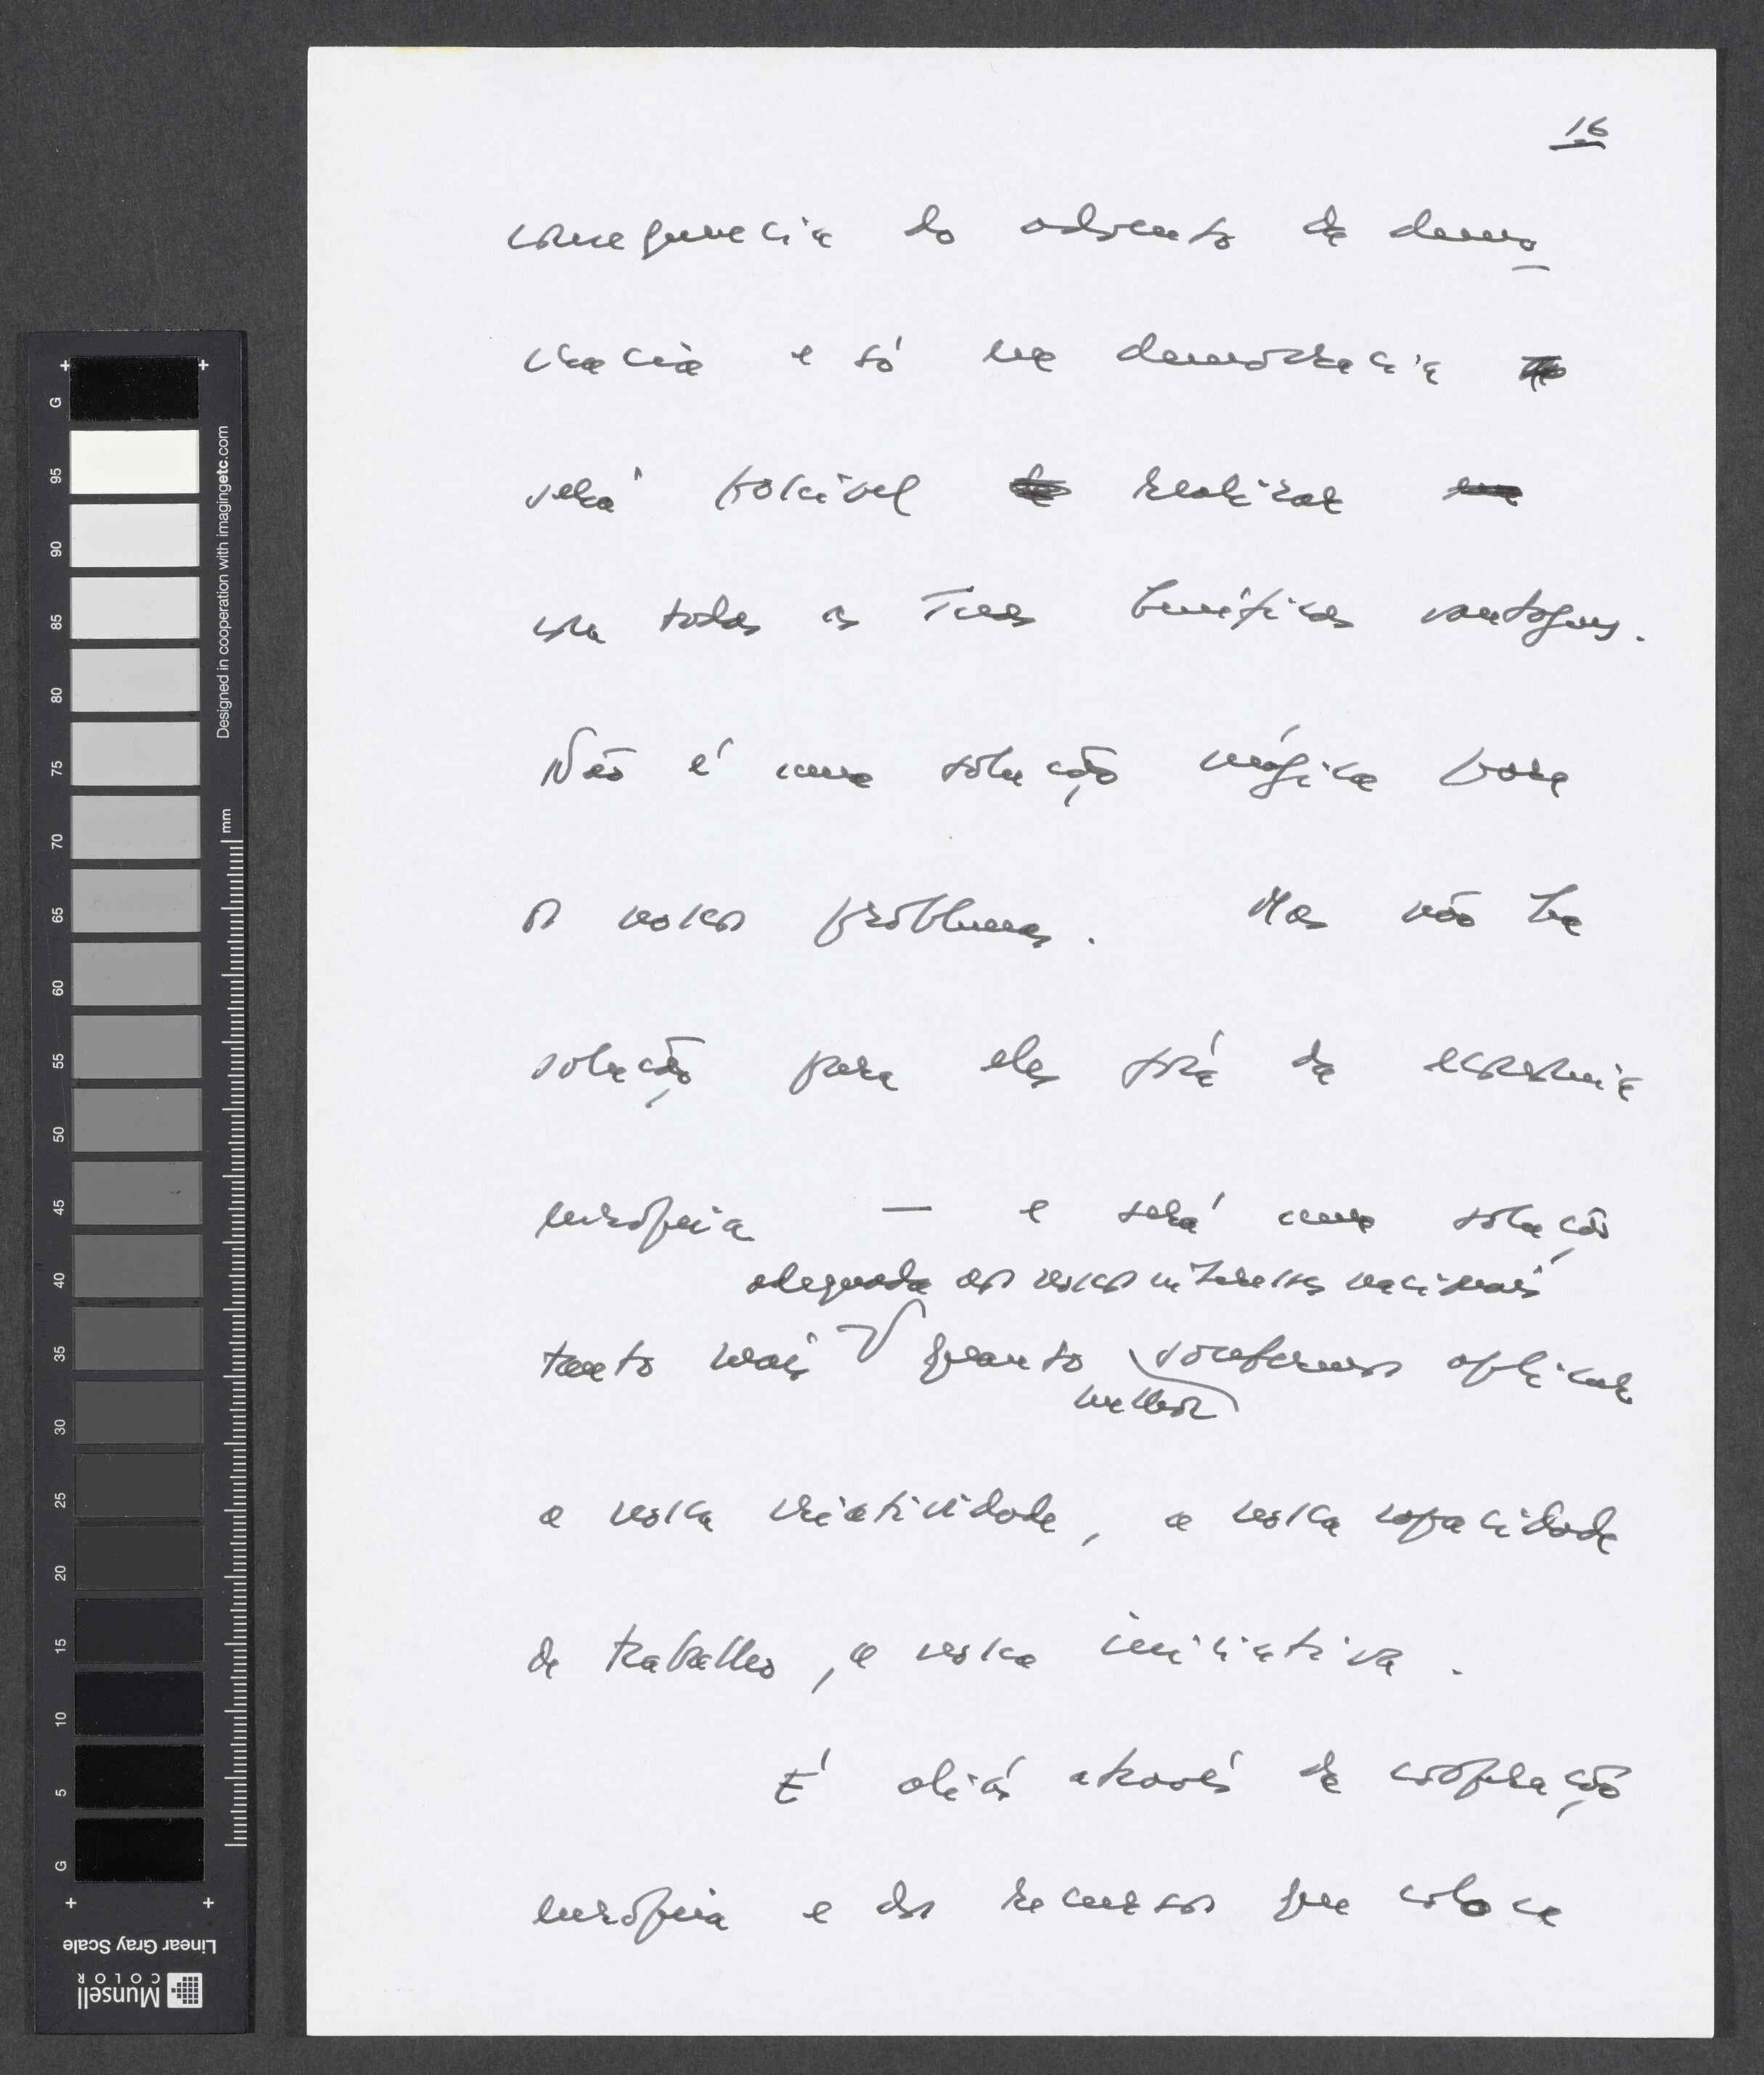 16
consequencia do advento da demo
cracia e só na democracia
será possível realizar
com todas as suas benéficas vantagens.
Não é uma solução mágica para
os nossos problemas. Mas não ha
solução para eles fora da economia
europeia — e será uma solução
adequada aos nossos interesses nacionais
tanto mais quanto soubermos aplicar
melhor
a nossa criatividade, a nossa capacidade
de trabalho, a nossa iniciativa.
É aliás através da cooperação
europeia e dos recursos que coloca
G 95 90 85 80 75 70 65 60 55 50 45 40 35 30 25 20 15 10 5 G
mm
Designed in cooperation with imagingetc.com
Linear Gray Scale
Munsell
COLOR